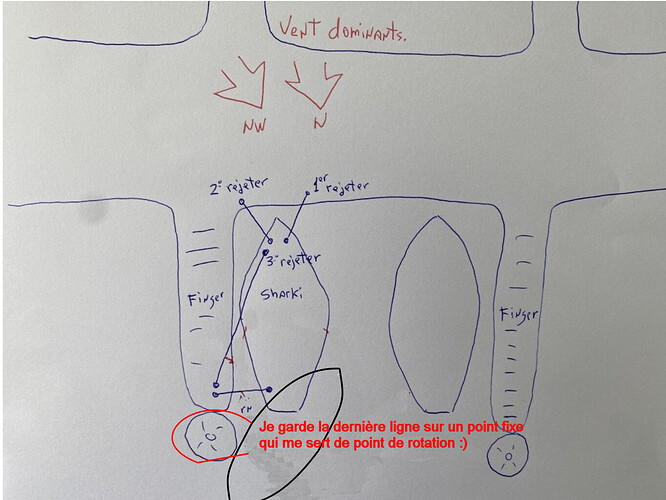 Vent dominants.
NW N
2e rejeter 1er rejeter
3e rejeter
Finger Sharki Finger
Je garde la dernière ligne sur un point fixe
qui me sert de point de rotation :)